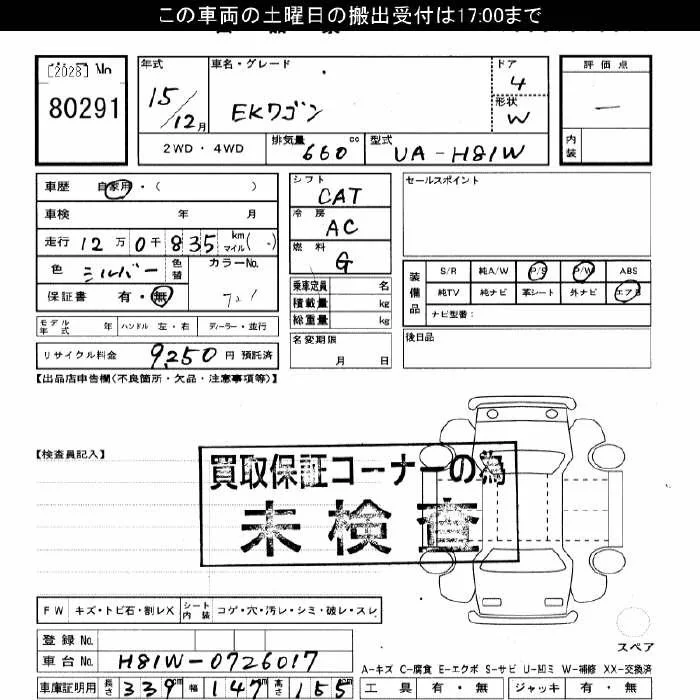 この車両の土曜日の搬出受付は17:00まで
[2028] No
80291
年式
15/12月
車名・グレード
EKワゴン
ドア
4
形状
W
評価点
―
内装
2WD・4WD
排気量 660 cc
型式 UA-H81W
車歴 自家用・( )
車検 年 月
走行 12万0千835 km マイル( )
色 シルバー 色替 カラーNo.
保証書 有・無
モデル年式 年 ハンドル 左・右 ディーラー・並行
リサイクル料金 9,250 円 預託済
シフト
CAT
冷房
AC
燃料
G
乗車定員 名
積載量 kg
総重量 kg
名変期限
月 日
セールスポイント
装備品
S/R 純A/W P/S P/W ABS
純TV 純ナビ 革シート 外ナビ エアB
ナビ型番:
後日品
【出品店申告欄(不良箇所・欠品・注意事項等)】
【検査員記入】
買取保証コーナーの為
未検査
FW キズ・トビ石・割レX シート内装 コゲ・穴・汚レ・シミ・破レ・スレ
登録No.
車台No. H81W-0726017
車庫証明用 長さ 339cm 幅 147cm 高さ 155cm
スペア
A-キズ C-腐食 E-エクボ S-サビ U-凹ミ W-補修 XX-交換済
工具 有・無 ジャッキ 有・無